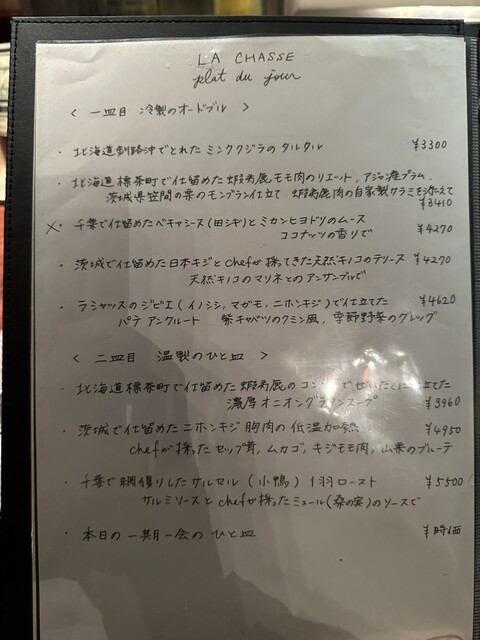 LA CHASSE
plat du jour
< 一皿目 冷製のオードブル >
・北海道釧路沖でとれた ミンククジラの タルタル ¥3300
・北海道標茶町で仕留めた蝦夷鹿モモ肉のリエット、アジャン産プラム、
茨城県笠間の栗のモンブラン仕立て 蝦夷鹿肉の自家製サラミを添えて
¥3410
×・千葉で仕留めたベキャシーヌ(田シギ)とミカンヒヨドリのムース
ココナッツの香りで ¥4270
・茨城で仕留めた日本キジとchefが採ってきた天然キノコのテリーヌ ¥4270
天然キノコのマリネとのアンサンブルで
・ラシャッスのジビエ(イノシシ、マガモ、ニホンキジ)で仕立てた ¥4620
パテ アンクルート 紫キャベツのクミン風、季節野菜のグレッグ
< 二皿目 温製のひと皿 >
・北海道標茶町で仕留めた蝦夷鹿のコンソメでぜいたくに仕立てた
濃厚オニオングラタンスープ ¥3960
・茨城で仕留めたニホンキジ胸肉の低温加熱 ¥4950
chefが採ったセップ茸、ムカゴ、キジモモ肉、山栗のブルーテ
・千葉で網獲りしたサルセル(小鴨)1羽ロースト ¥5500
サルミソースとchefが採ったミュール(桑の実)のソースで
・本日の一期一会のひと皿 ¥時価